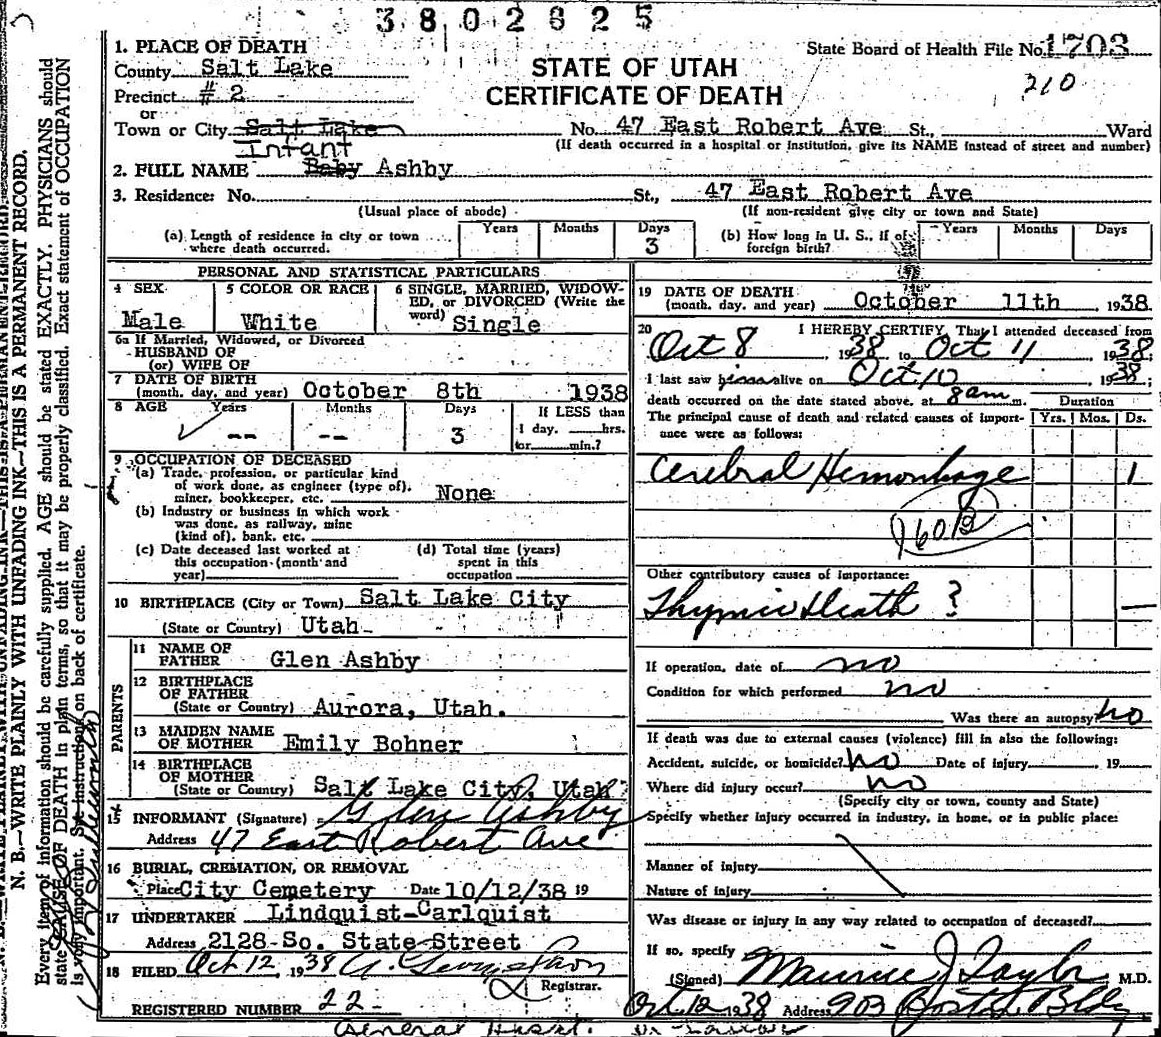 3802625
State Board of Health File No. 1703
210
STATE OF UTAH
CERTIFICATE OF DEATH
1. PLACE OF DEATH
County Salt Lake
Precinct # 2
or
Town or City Salt Lake No. 47 East Robert Ave St., Ward
(If death occurred in a hospital or institution, give its NAME instead of street and number)
Infant
2. FULL NAME Baby Ashby
3. Residence: No. St., 47 East Robert Ave
(Usual place of abode) (If non-resident give city or town and State)
(a) Length of residence in city or town where death occurred. Years Months Days 3
(b) How long in U. S., if of foreign birth? Years Months Days
PERSONAL AND STATISTICAL PARTICULARS
4 SEX Male
5 COLOR OR RACE White
6 SINGLE, MARRIED, WIDOWED, or DIVORCED (Write the word) Single
6a If Married, Widowed, or Divorced
HUSBAND OF
(or) WIFE OF
7 DATE OF BIRTH
(month, day, and year) October 8th 1938
8 AGE Years -- Months -- Days 3
If LESS than 1 day, hrs. or min.?
9 OCCUPATION OF DECEASED
(a) Trade, profession, or particular kind
of work done, as engineer (type of),
miner, bookkeeper, etc. None
(b) Industry or business in which work
was done, as railway, mine
(kind of), bank, etc.
(c) Date deceased last worked at
this occupation (month and
year)
(d) Total time (years)
spent in this
occupation
10 BIRTHPLACE (City or Town) Salt Lake City
(State or Country) Utah
PARENTS
11 NAME OF
FATHER Glen Ashby
12 BIRTHPLACE
OF FATHER
(State or Country) Aurora, Utah.
13 MAIDEN NAME
OF MOTHER Emily Bohner
14 BIRTHPLACE
OF MOTHER
(State or Country) Salt Lake City, Utah
15 INFORMANT (Signature) Glen Ashby
Address 47 East Robert Ave
16 BURIAL, CREMATION, OR REMOVAL
Place City Cemetery Date 10/12/38 19
17 UNDERTAKER Lindquist-Carlquist
Address 2128 So. State Street
18 FILED Oct 12, 1938
Registrar.
REGISTERED NUMBER 22
19 DATE OF DEATH
(month, day, and year) October 11th 1938
20 I HEREBY CERTIFY, That I attended deceased from
Oct 8, 1938, to Oct 11 1938;
I last saw him alive on Oct 10 1938;
death occurred on the date stated above, at 8 am m. Duration
The principal cause of death and related causes of importance were as follows: Yrs. Mos. Ds.
Cerebral Hemorrhage 1
160B
Other contributory causes of importance:
Thymic Death ? —
If operation, date of no
Condition for which performed no
Was there an autopsy? no
If death was due to external causes (violence) fill in also the following:
Accident, suicide, or homicide? no Date of injury 19
Where did injury occur? no
(Specify city or town, county and State)
Specify whether injury occurred in industry, in home, or in public place:
Manner of injury
Nature of injury
Was disease or injury in any way related to occupation of deceased?
If so, specify
(Signed) Maurice J Taylor M.D.
Oct 12 1938 Address 903 Boston Bldg
N. B.—WRITE PLAINLY WITH UNFADING INK—THIS IS A PERMANENT RECORD.
Every item of information should be carefully supplied. AGE should be stated EXACTLY. PHYSICIANS should
state CAUSE OF DEATH in plain terms, so that it may be properly classified. Exact statement of OCCUPATION
is very important. See instructions on back of certificate.